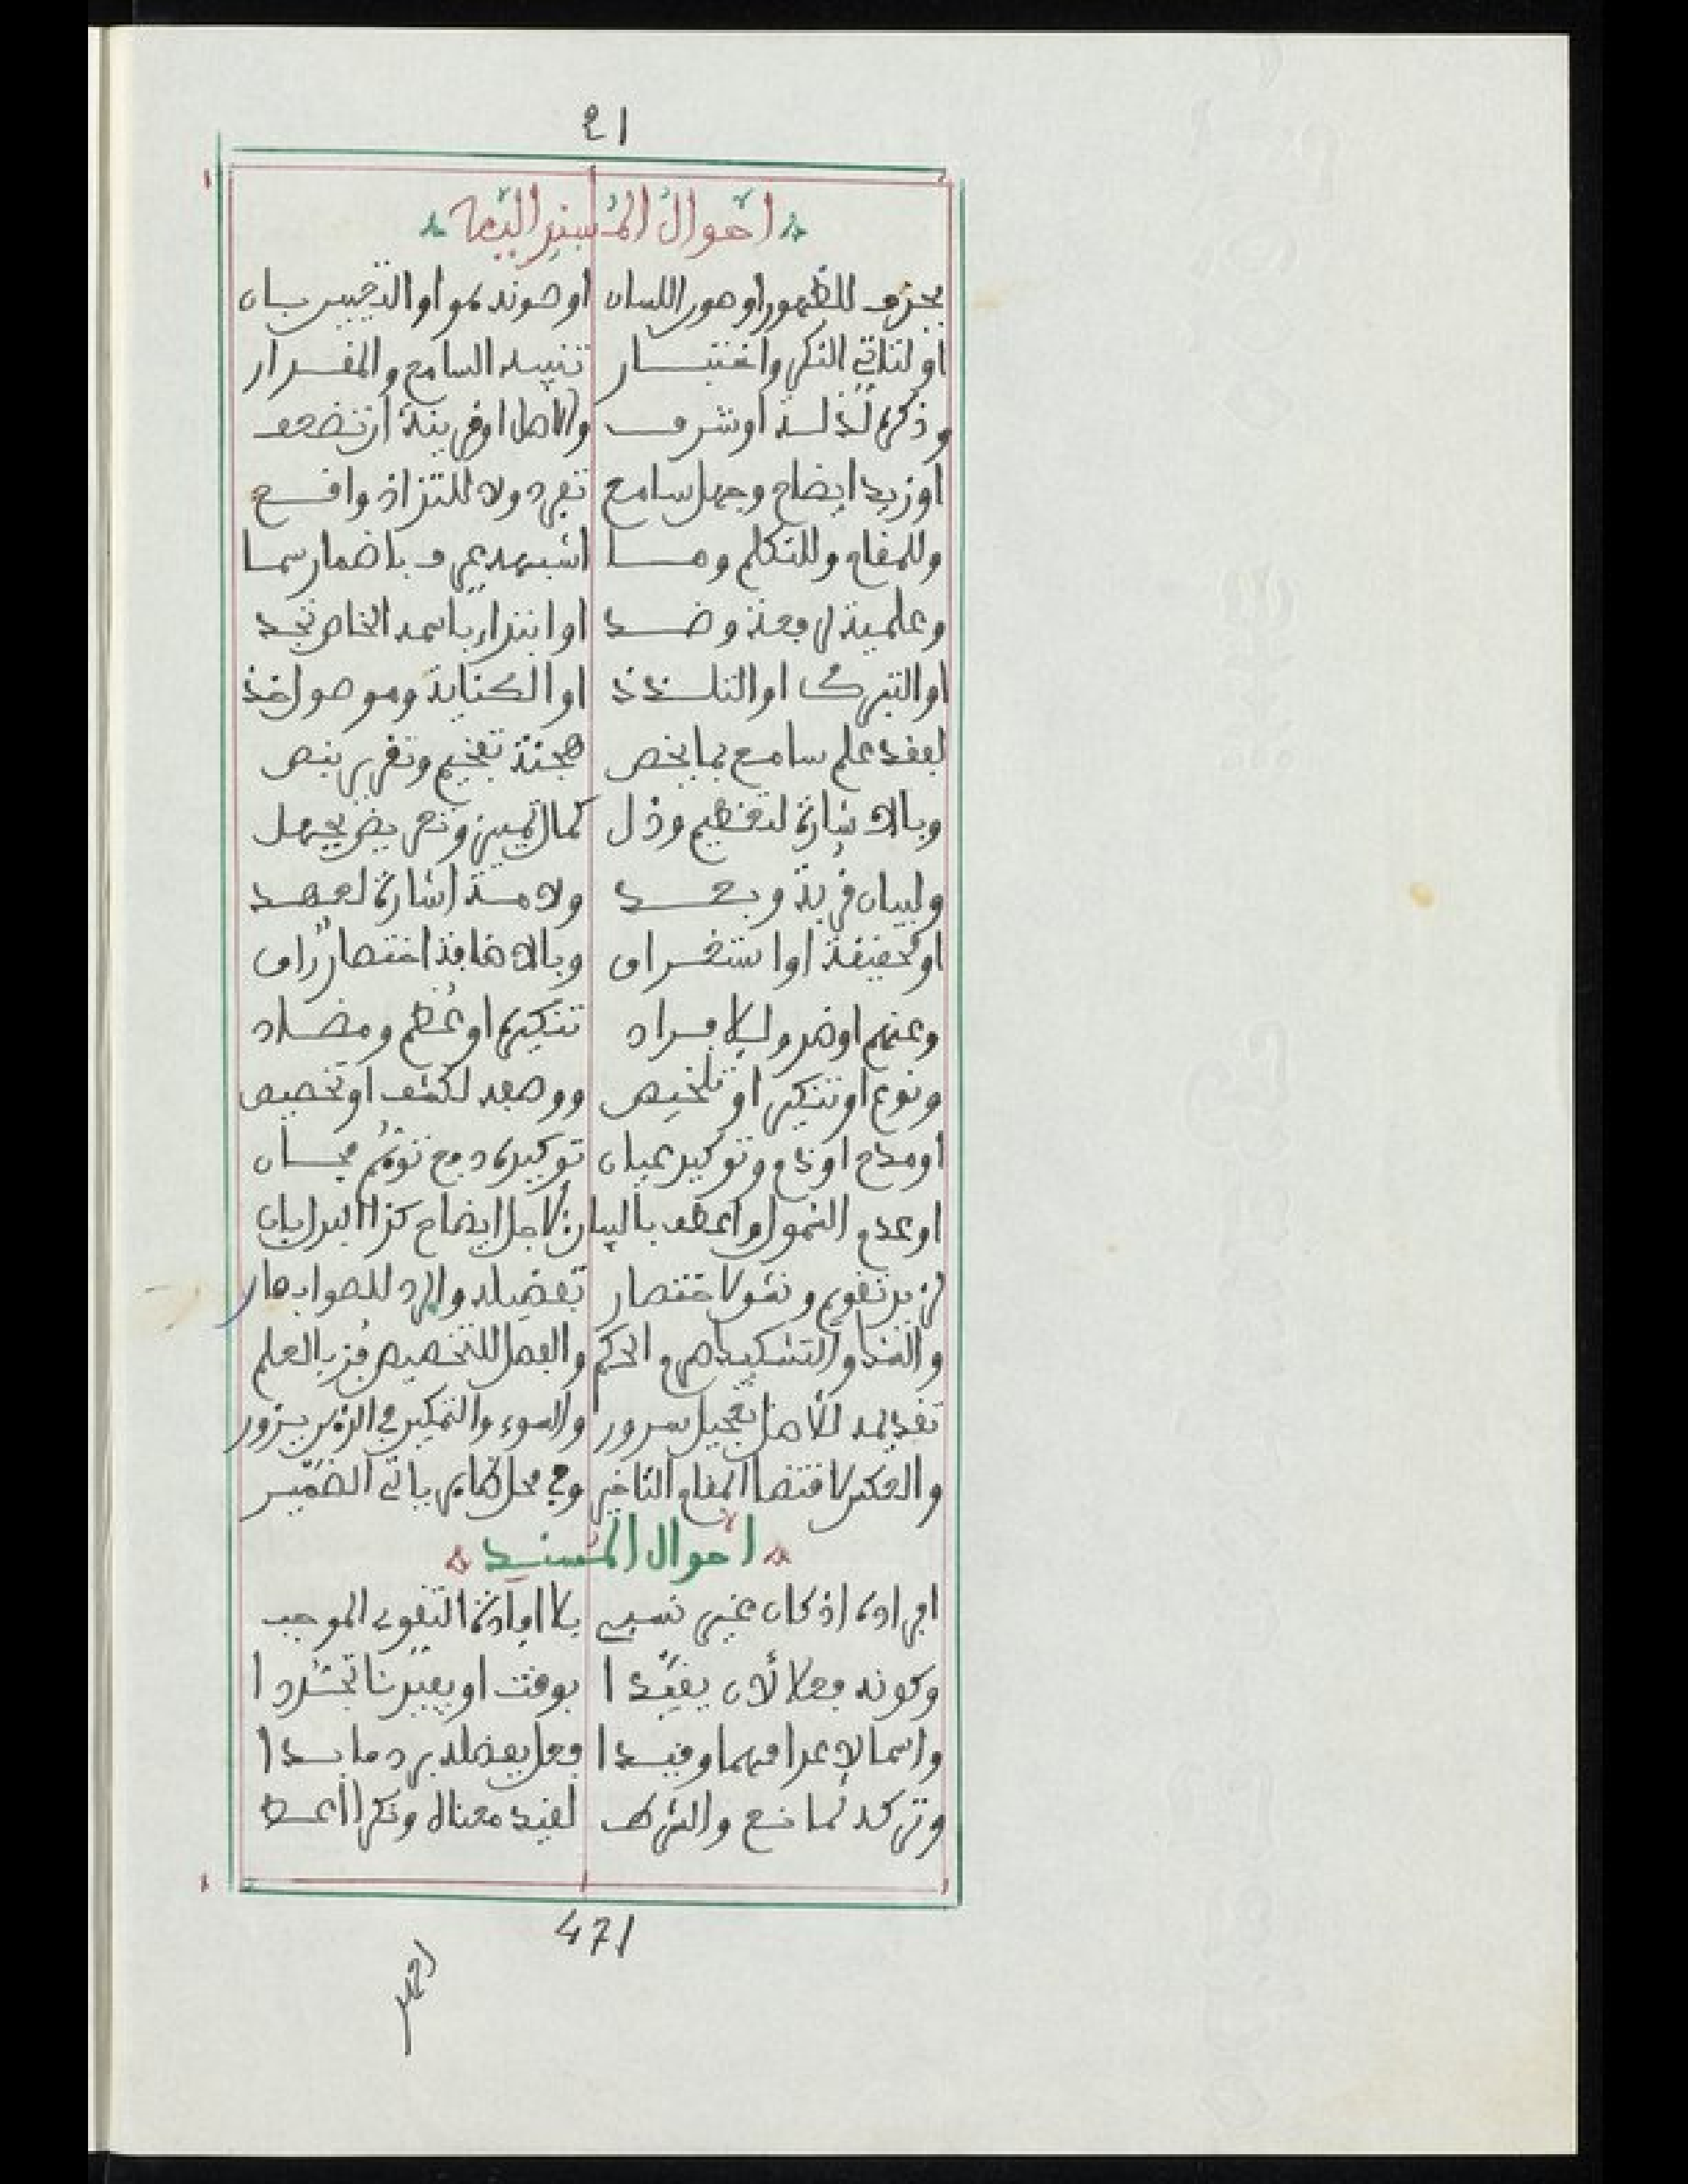 21
احوال المسند اليه
يحذف للظهور او صون اللسان او صونه هو او التخيير بان
او لتاتي النكر واختبار تنبيه السامع والمقدار
وذكره لذلة او شرف والاصل او قرينة ان تضعف
او زيد ايضاح وجهل سامع تعبد ولا للتزاذ واقع
وللمقام وللتكلم وما اشبهه عرف باضمار سما
وعلمية لرفعة وضد او ابتداء باسمه الخاص تجد
او التبرك او التلذذ او الكناية وموصول خذ
لفقد علم سامع بما يخص هجنة تفخيم وتقرير ينص
وبالاشارة لتعظيم وذل كمال تمييز وتعريض بجهل
ولبيان قربة وبعد ولامة اشارة لعهد
او حقيقة او استغراق وبالاضافة اختصار راق
وعنهم او ضر وللافراد تنكيره او عظم ومضاد
ونوع او تنكير او تلخيص ووصفه لكشف او تخصيص
او مدح او ذم وتوكيد عيان توكيده دفع توهم مجان
او عدم الشمول واعطف بالبيان لاجل ايضاح كذا البدل بان
لزيد تقوي ونسق لاختصار تفصيله والرد للصواب صار
والشك والتشكيك صرف الحكم والفصل للتخصيص فز بالعلم
تقديمه للاصل تعجيل سرور والسوء والتمكين في الذهن يزور
والعكس لاقتضا المقام التاخير وفي محل ظاهر ياتي الضمير
احوال المسند
افراده اذ كان غير نسبي بلا افادة التقوي الموجب
وكونه فعلا لان يقيدا بوقت او يفيدنا تجددا
واسما لاعدامهما وقيدا فعل بفضله يرد ما بدا
وتركه لمانع والشرط لقيد معناه ونكرا اعط
471
احمد